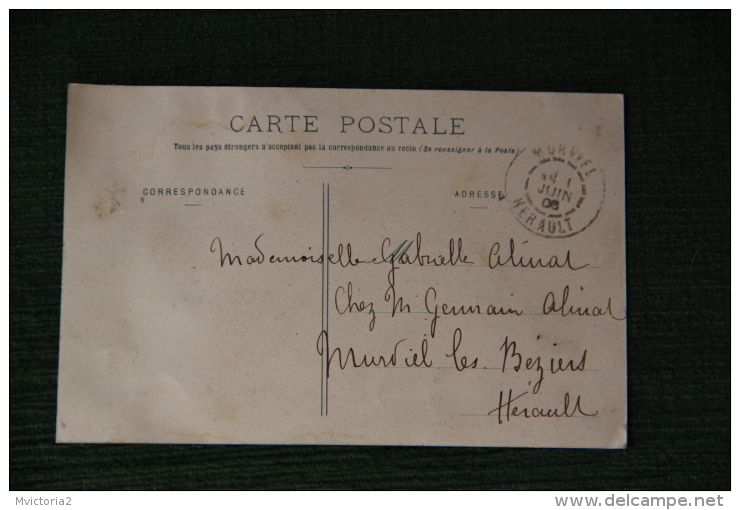 CARTE POSTALE
Tous les pays étrangers n'acceptent pas la correspondance au recto (Se renseigner à la Poste)
CORRESPONDANCE
ADRESSE
MURVIEL
JUIN
06
HÉRAULT
Mademoiselle Gabrielle Alinat
Chez M Germain Alinat
Murviel les Béziers
Hérault
Mvictoria2
http://www.delcampe.net